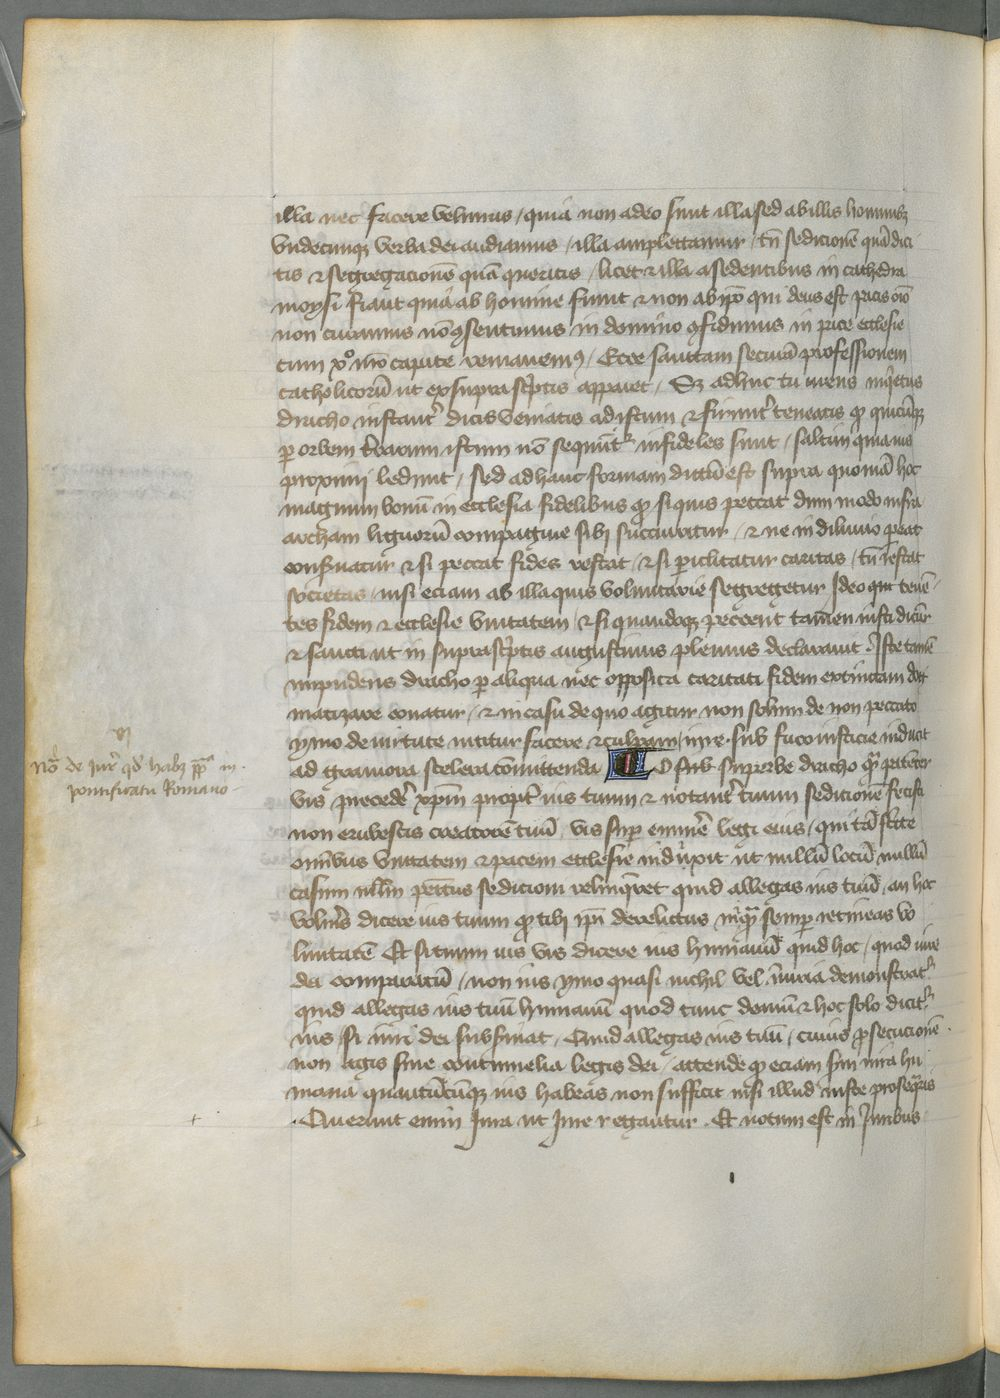 illa nec facere velimus / quia non adeo sunt illa sed ab illis hominibꝫ
Vndecunqꝫ verba dei audiamus / illa amplectamur / tn̄ sedicionē quā dici
tis ⁊ segregacionē quā queritis / licet ⁊ illa a sedentibus in cathedra
moysi fiant quia ab homine sunt ⁊ non ab ip̄o qui deus est pacis
non curamus nō ꝯsentimus in domino ꝯfidimus in pace ecclesie
cum xp̄o capite remanemꝰ / Ecce sanctam securā professionem
catholicorū ut ex suprasc̄ptis apparet / Sꝫ adhuc tu iuens inq̄etus
diracho instant̄ dicis veniatis ad istum ⁊ firmit̄ teneatis ꝙ quicūqꝫ
ꝑ orbem t̄rarum istum nō sequūt̄ infideles sunt / saltim quia ius
proximi ledunt / sed ad hanc formam dictū est supra quoniā hoc
magnum bonū in ecclesia fidelibus ꝙ si quis peccat dum modo infra
archam lignorū compagine sibi succurritur / ⁊ ne in diluuio ꝑeat
conẜuatur ⁊ si peccat fides restat / ⁊ si ꝑiclitatur caritas / tn̄ restat
societas / nisi eciam ab illa quis voluntarie segregetur Ideo qui tenē
tes fidem ⁊ ecclesie vnitatem / ⁊ si quandoqꝫ peccent tamen iusti dicūt̄
⁊ sancti ut in suprasc̄ptis augustinus plenius declarauit . Iste tamē
impudens diracho ꝑ aliqua nec opposita caritati fidem extinctam dog
matizare conatur / ⁊ in casu de quo agitur non solum de non peccato
ymo de virtute nititur facere ⁊ culpam / ime sub fuco iusticie inducit
ad grauiora scelera cōmittenda / O sub superbe diracho
vis precedē xp̄m propt̄ ius tuum ⁊ notant̄ tuum sedicionē fecisti
non erubescis creatorē tuū / vis suꝑ eminē legi eius / qui tā
omībus vnitatem ⁊ pacem ecclesie indixit ut nullū locū nullū
casum nullm̄ penitus sedicioni relinq̄ret quid allegas ius tuū / an hoc
volueris dicere ius tuum ꝙ tibi ip̄i derelictus semꝑ retineas vo
luntatē Et si tuum ius vis dicere ius humanū quid hoc / quod iure
dei comparatū / non ius ymo quasi nichil vel iniuria demonstrat̄
quid allegas ius tuū humanū quod tunc demū ⁊ hoc solo dicit̄
ius / si iuri dei subẜuiat / Quid allegas ius tuū / cuius ꝓsecucionē
non agis sine contumelia legis dei / attende ꝙ eciam scdm̄ iura hu
mana quantūcūqꝫ ius habeas non sufficit nisi illud iuste prosequaris
. Querunt enim Iura ut Iure regantur . Et notum est in Iuribus
No de iure qd̄ habꝫ pp̄ in
pontificatu Romano